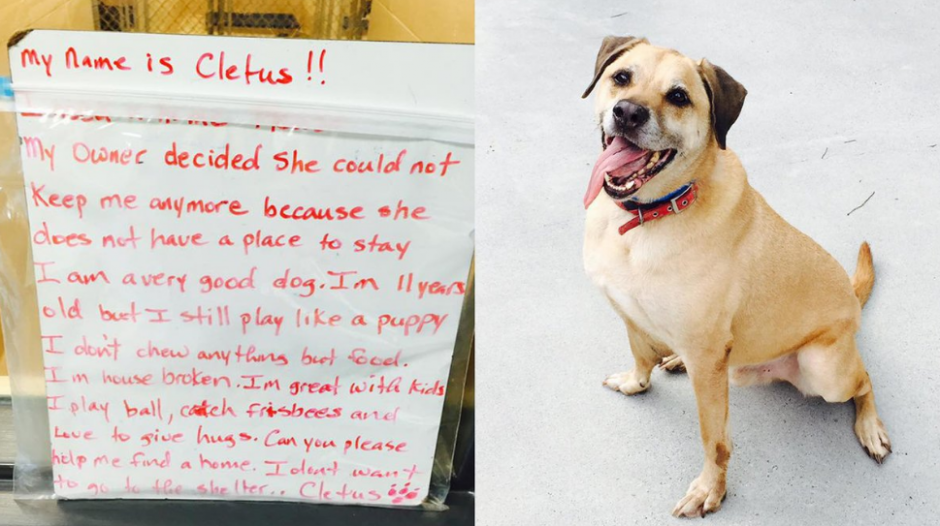 My Name is Cletus!!
My Owner decided She could not
Keep me anymore because she
does not have a place to stay
I am a very good dog. I'm 11 years
old but I still play like a puppy
I don't chew anything but food.
I'm house broken. I'm great with kids
I play ball, catch frisbees and
Love to give hugs. Can you please
help me find a home. I don't want
to go to the shelter.. Cletus